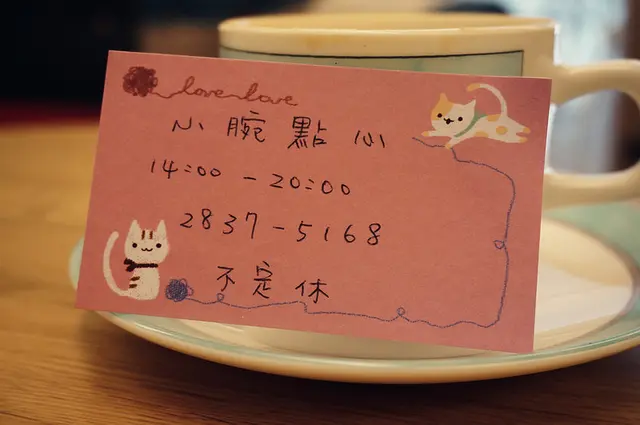 love love
小腕點心
14:00 - 20:00
2837-5168
不定休